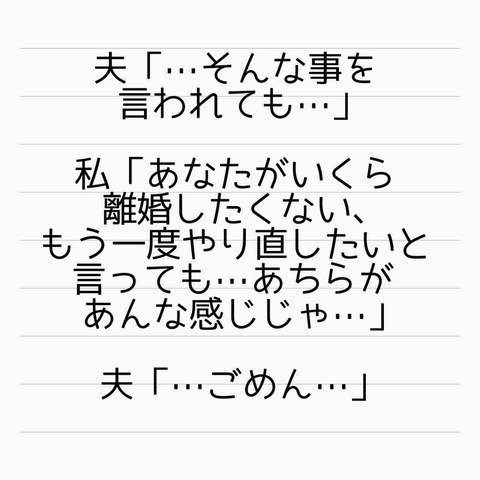 夫「…そんな事を
言われても…」
私「あなたがいくら
離婚したくない、
もう一度やり直したいと
言っても…あちらが
あんな感じじゃ…」
夫「…ごめん…」